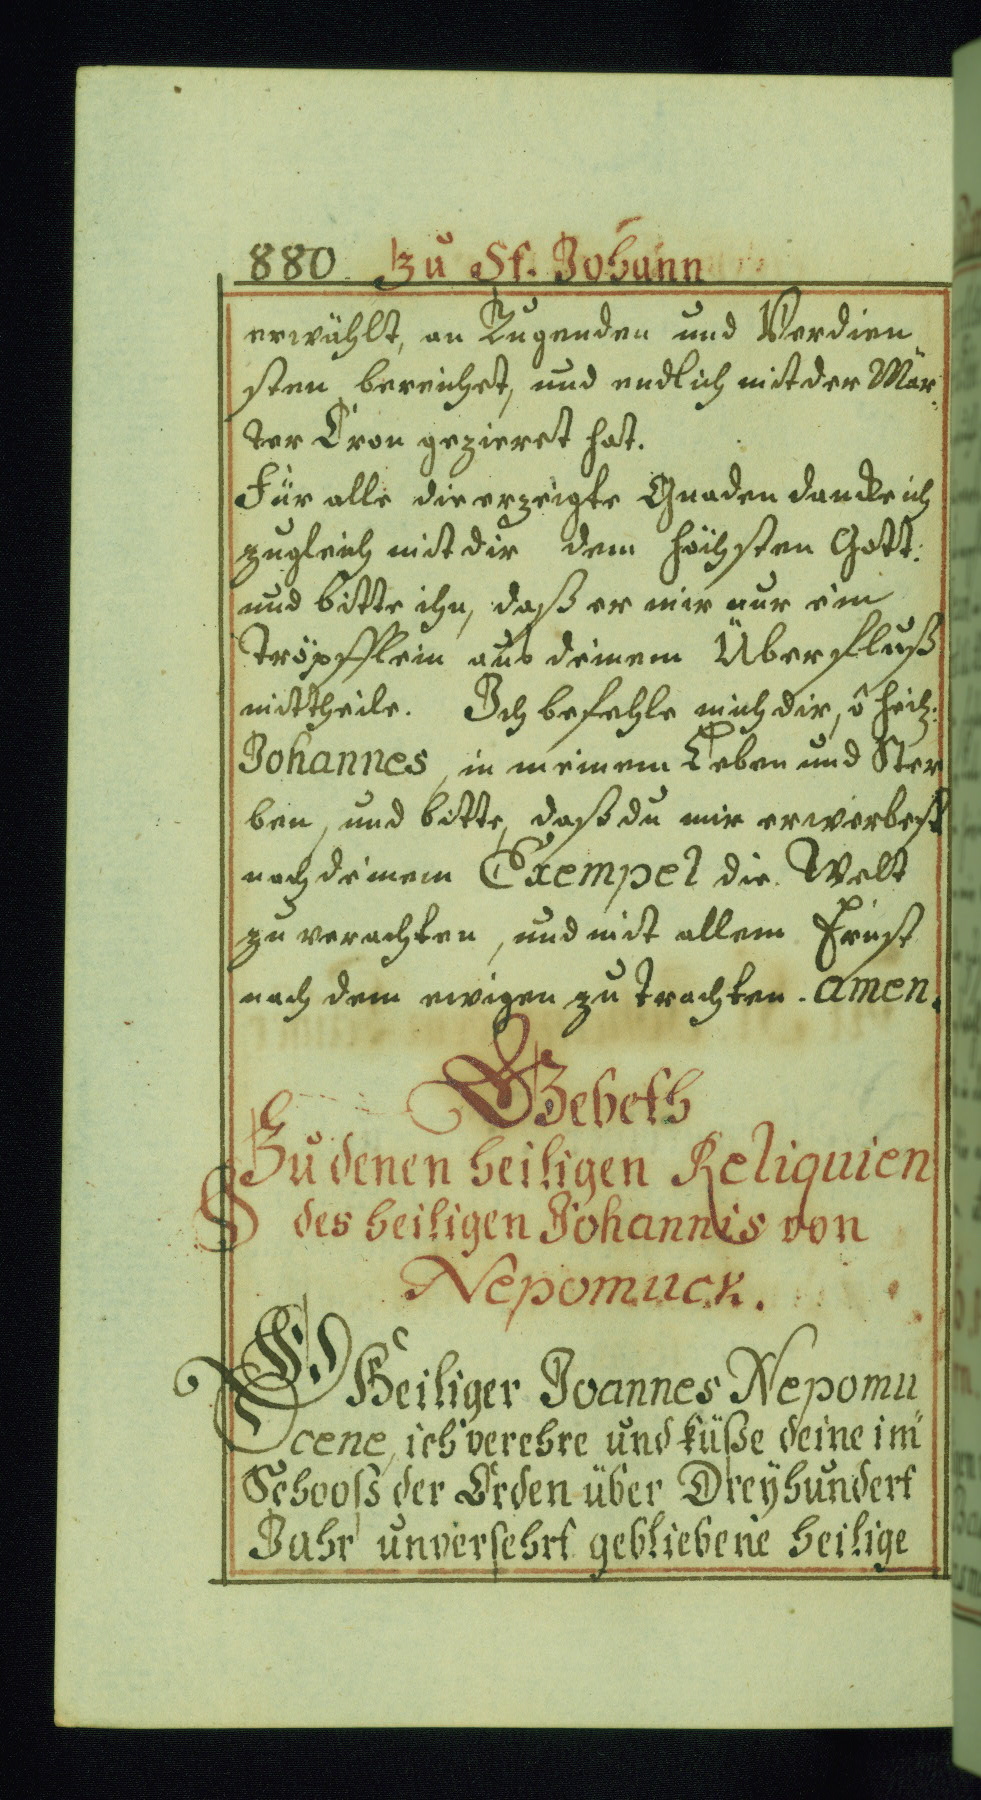 880 Zu St. Johann
erwählt, an Tugenden und Verdien
sten bereichet, und endlich mit der Mär
ter Cron gezieret hat.
Für alle die erzeigte Gnaden dancke ich
zugleich mit dir dem höchsten Gott:
und bitte ihn, daß er mir nur ein
Tröpfflein aus deinem Überfluß
mittheile. Ich befehle mich dir, ô heilg:
Johannes, in meinem Leben und Ster
ben, und bitte, daß du mir erwerbest
nach deinem Exempel die Welt
zu verachten, und mit allem Ernst
nach dem ewigen zu trachten. amen.
Gebeth
Zu denen heiligen Reliquien
des heiligen Johannis von
Nepomuck.
O Heiliger Joannes Nepomu
cene, ich verehre und küße deine im
Schooß der Erden über Dreÿhundert
Jahr unversehrt gebliebene heilige